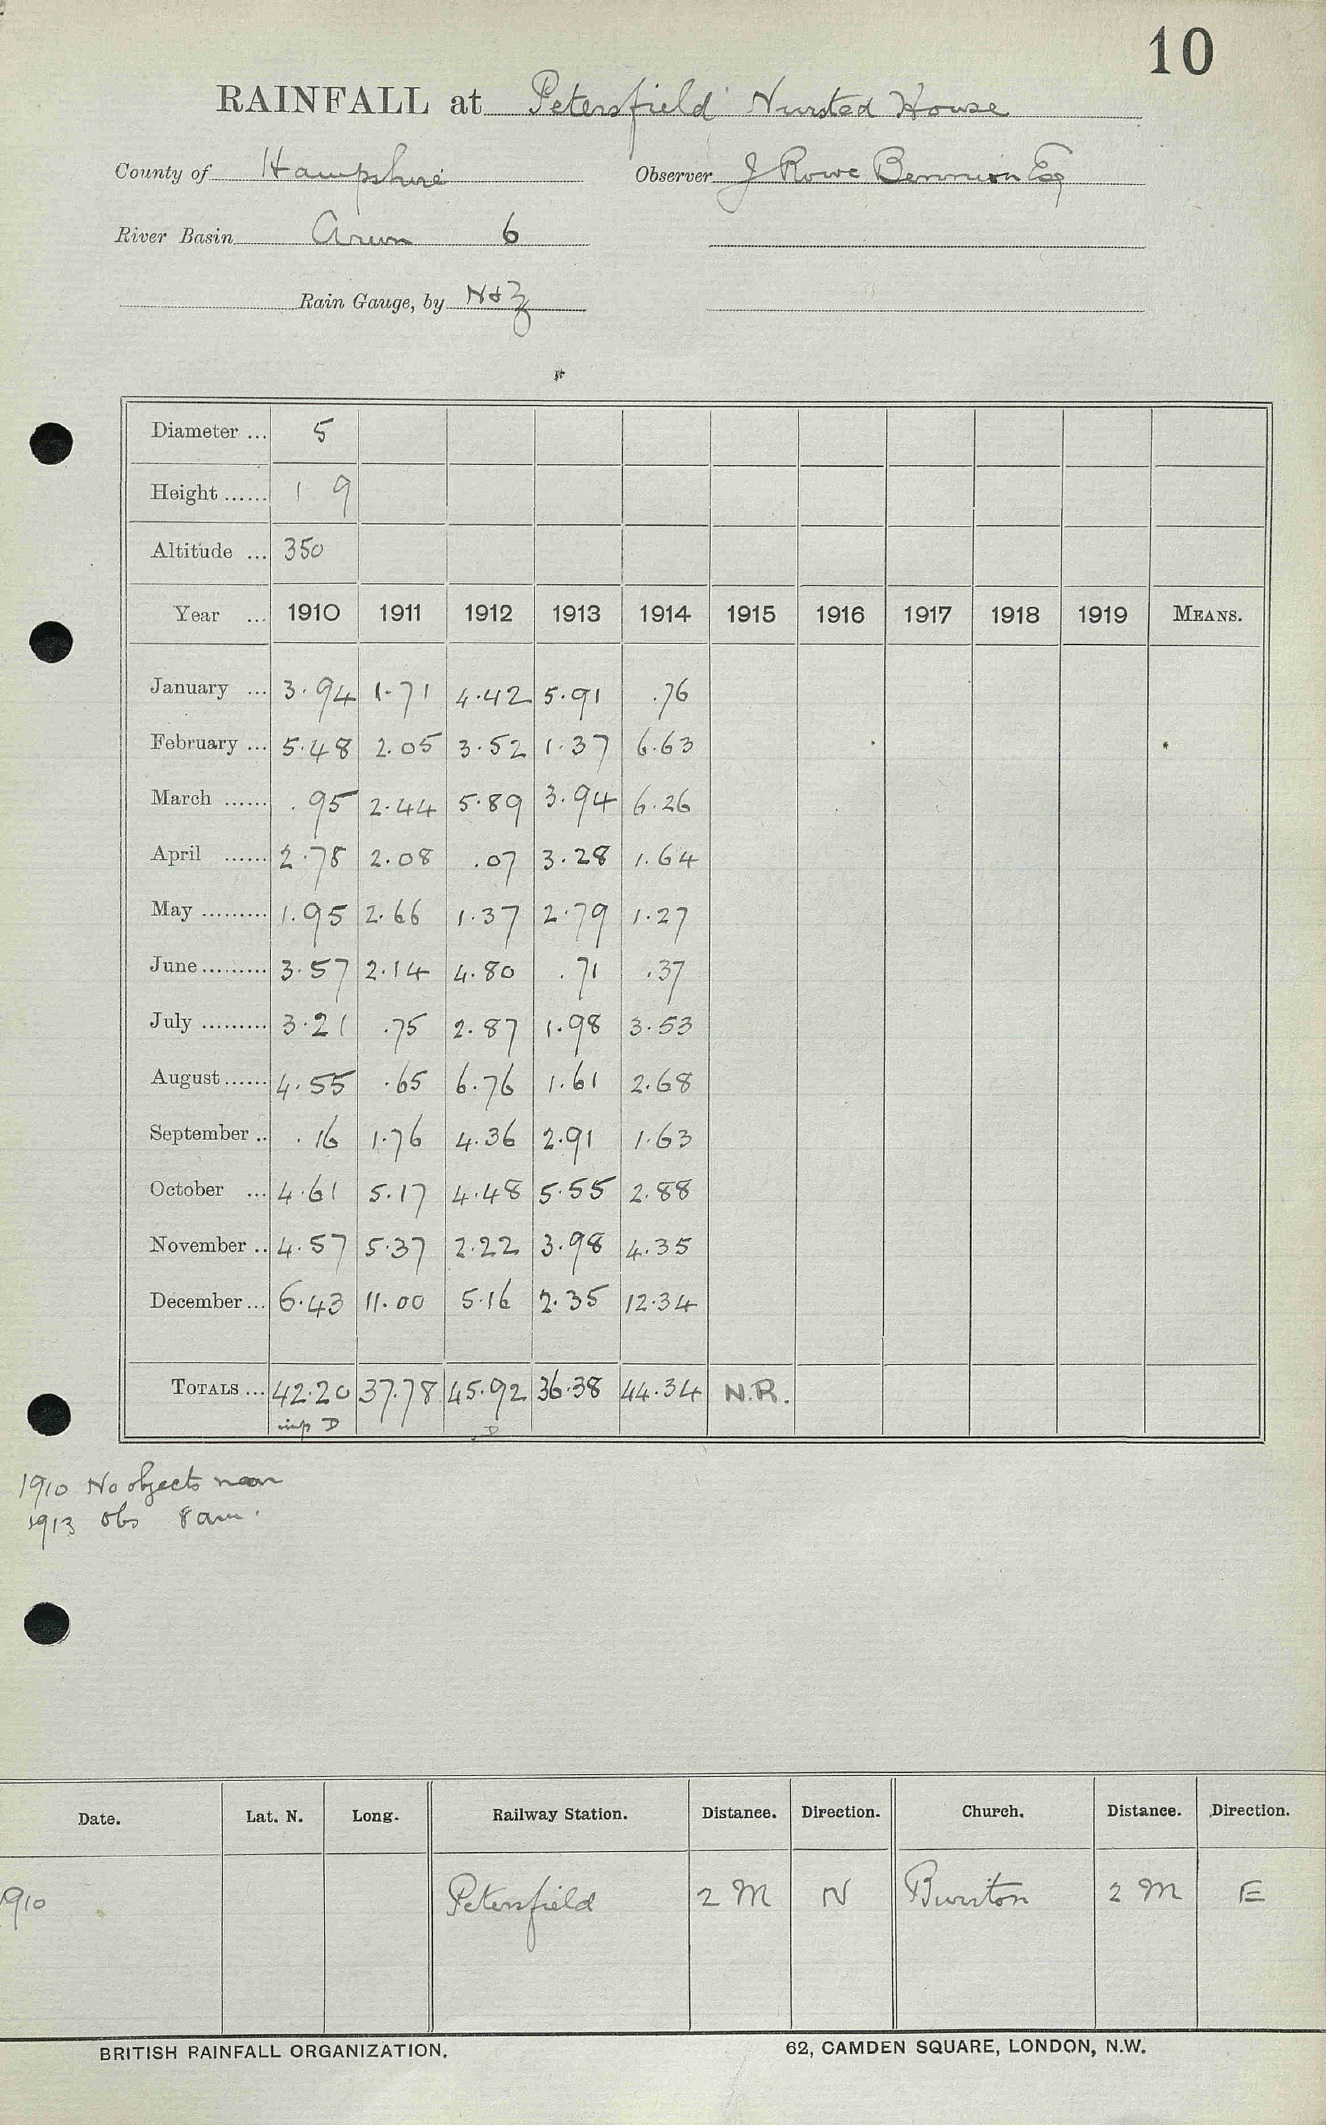 10
RAINFALL at Petersfield Nursted House
County of Hampshire Observer J Rowe Bennion Esq
River Basin Arun 6
Rain Gauge, by N & Z
Diameter ... 5
Height ...... 1 9
Altitude ... 350
Year ... 1910 1911 1912 1913 1914 1915 1916 1917 1918 1919 MEANS.
January ... 3.94 1.71 4.42 5.91 .76
February ... 5.48 2.05 3.52 1.37 6.63
March ...... .95 2.44 5.89 3.94 6.26
April ...... 2.78 2.08 .07 3.28 1.64
May ......... 1.95 2.66 1.37 2.79 1.27
June ......... 3.57 2.14 4.80 .71 .37
July ......... 3.21 .75 2.87 1.98 3.53
August ...... 4.55 .65 6.76 1.61 2.68
September .. .16 1.76 4.36 2.91 1.63
October ... 4.61 5.17 4.48 5.55 2.88
November .. 4.57 5.37 2.22 3.98 4.35
December ... 6.43 11.00 5.16 2.35 12.34
TOTALS ... 42.20 37.78 45.92 36.38 44.34 N.R.
D D
1910 No objects near
1913 obs 8 am.
Date. Lat. N. Long. Railway Station. Distance. Direction. Church. Distance. Direction.
1910 Petersfield 2 M N Buriton 2 M E
BRITISH RAINFALL ORGANIZATION. 62, CAMDEN SQUARE, LONDON, N.W.